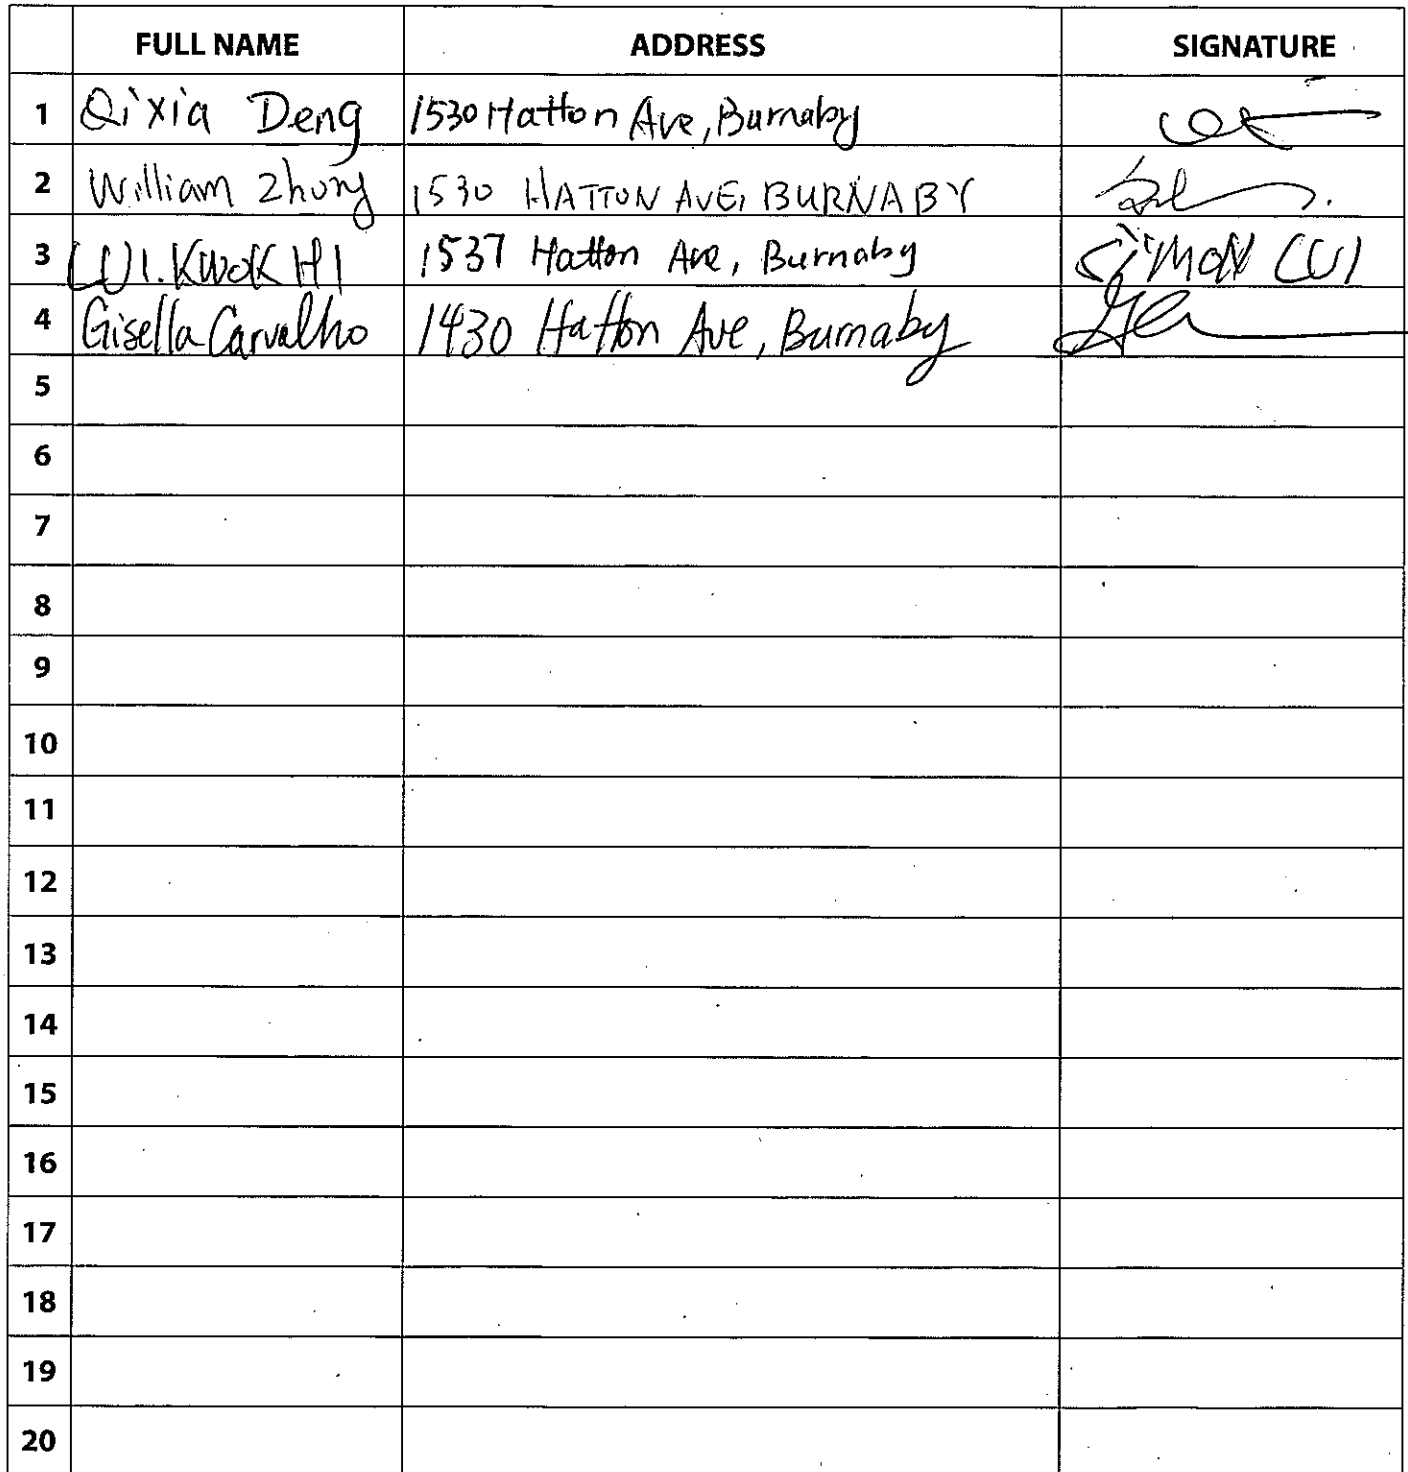 FULL NAME ADDRESS SIGNATURE
1 Qixia Deng 1530 Hatton Ave, Burnaby
2 William Zhong 1530 HATTON AVE, BURNABY
3 LUI. KWOK HI 1537 Hatton Ave, Burnaby SIMON LUI
4 Gisella Carvalho 1430 Hatton Ave, Burnaby
5
6
7
8
9
10
11
12
13
14
15
16
17
18
19
20